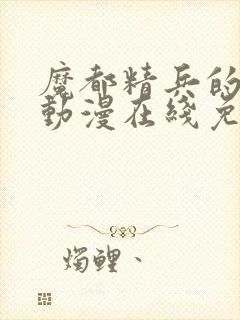 魔都精兵的
動漫在綫免
燭鯉、